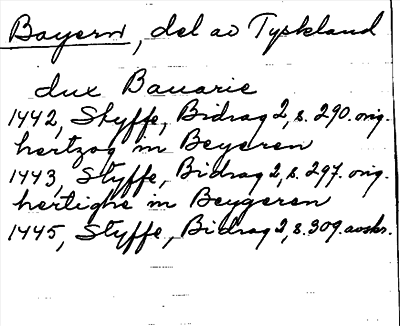 Bayern, del av Tyskland
dux Bauarie
1442, Styffe, Bidrag 2, s. 290. orig.
hertzog m Beyeren
1443, Styffe, Bidrag 2, s. 297. orig.
hertighe m Beygeren
1445, Styffe, Bidrag 2, s. 309. avskr.